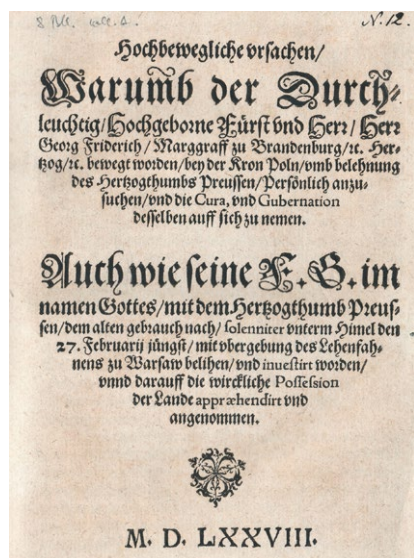 8 Bll. coll. A.
N. 12.
Hochbewegliche vrsachen/
Warumb der Durch-
leuchtig/Hochgeborne Fürst vnd Herr/ Herr
Georg Friderich/ Marggraff zu Brandenburg/ꝛc. Her-
tzog/ꝛc. bewegt worden/bey der Kron Poln/vmb belehnung
des Hertzogthumbs Preussen/Persönlich anzu-
suchen/vnd die Cura, vnd Gubernation
desselben auff sich zu nemen.
Auch wie seine F. G. im
namen Gottes/mit dem Hertzogthumb Preus-
sen/dem alten gebrauch nach/ solenniter vnterm Himel den
27. Februarij jüngst/mit vbergebung des Lehenfah-
nens zu Warsaw belihen/vnd inuestirt worden/
vnnd darauff die wirckliche Possession
der Lande appræhendirt vnd
angenommen.
M. D. LXXVIII.